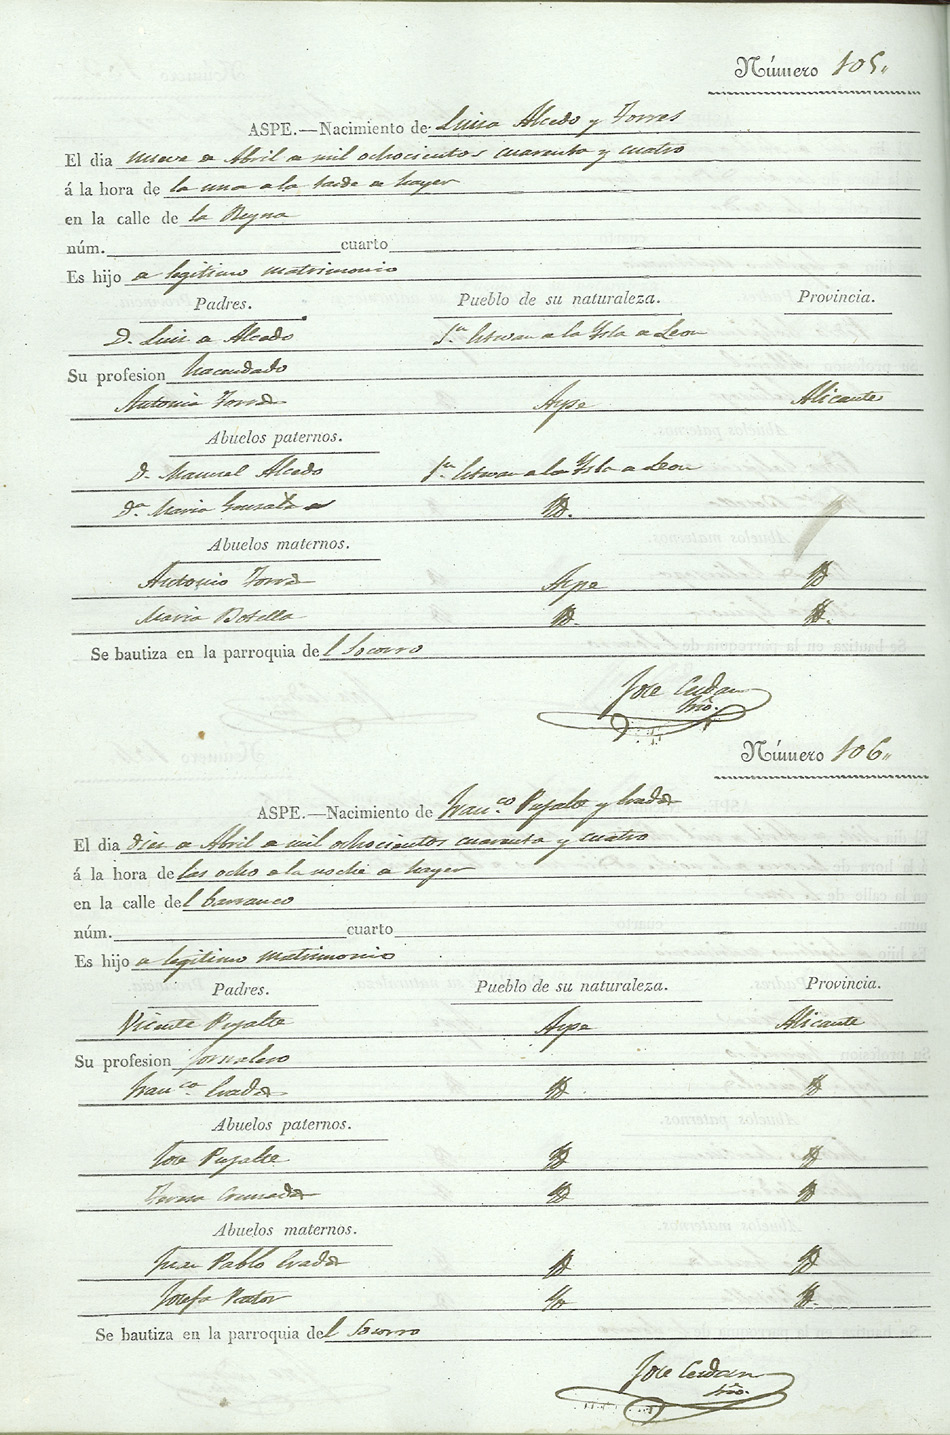 Número 105.
ASPE.—Nacimiento de Luisa Alcedo y Torres
El dia nueve de Abril de mil ochocientos cuarenta y cuatro
á la hora de la una de la tarde de hayer
en la calle de la Reyna
núm. cuarto
Es hijo de legitimo matrimonio
Padres. Pueblo de su naturaleza. Provincia.
D. Luis de Alcedo de la Ysla de Leon
Su profesion hacendado
Antonia Torres Aspe Alicante
Abuelos paternos.
D. Manuel Alcedo de la Ysla de Leon
Da. Maria Id.
Abuelos maternos.
Antonio Torres Aspe Id
Maria Botella Id. Id.
Se bautiza en la parroquia del Socorro
Jose Cerdan
Srio.
Número 106.
ASPE.—Nacimiento de Franco. Pujalte y
El dia diez de Abril de mil ochocientos cuarenta y cuatro
á la hora de las ocho de la noche de hayer
en la calle del barranco
núm. cuarto
Es hijo de legitimo matrimonio
Padres. Pueblo de su naturaleza. Provincia.
Vicente Pujalte Aspe Alicante
Su profesion jornalero
Franca. Id. Id
Abuelos paternos.
Jose Pujalte Id Id
Teresa Id Id
Abuelos maternos.
Juan Pablo Id Id
Josefa Pastor Id Id.
Se bautiza en la parroquia del Socorro
Jose Cerdan
Srio.